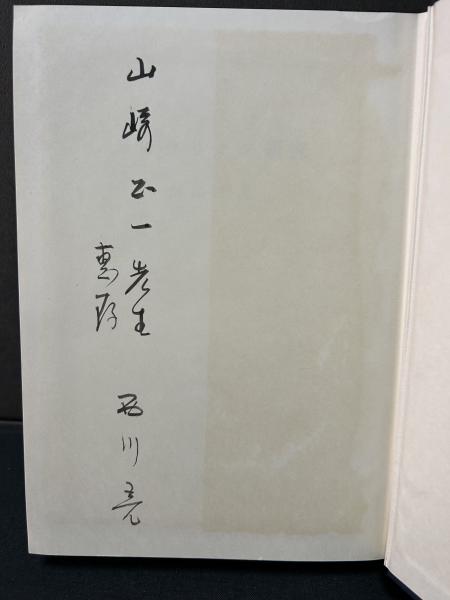 山崎正一先生
恵存
西川亮